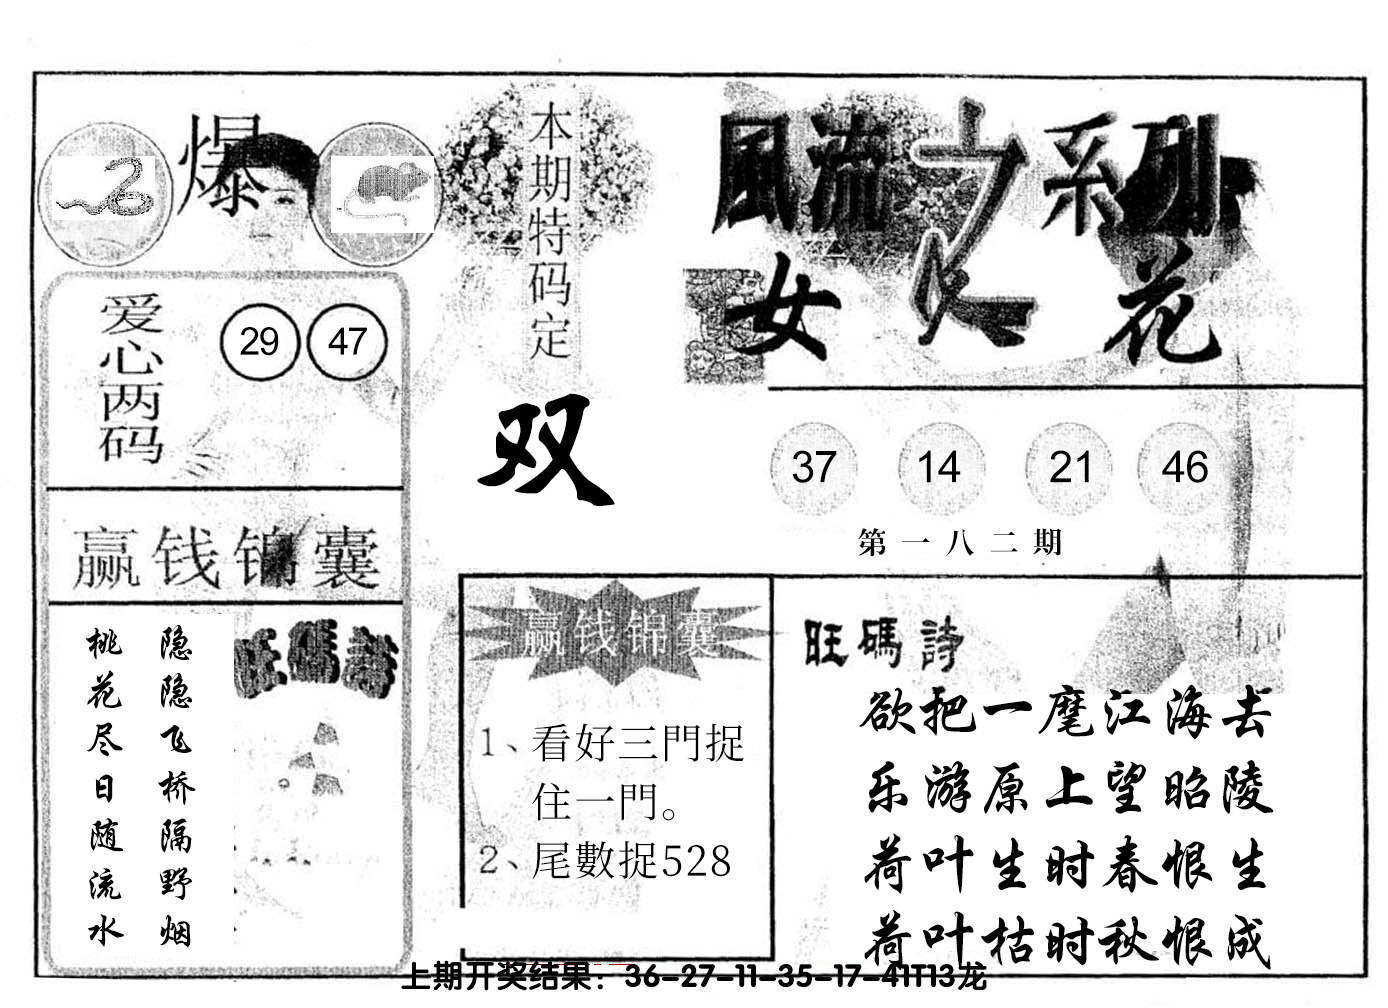 爆
本期特码定
双
風流之系列
女人花
爱心两码
29 47
37 14 21 46
第一八二期
赢钱锦囊
隐隐飞桥隔野烟
桃花尽日随流水
旺碼詩
赢钱锦囊
1、看好三門捉
住一門。
2、尾數捉528
旺碼詩
欲把一麾江海去
乐游原上望昭陵
荷叶生时春恨生
荷叶枯时秋恨成
上期开奖结果：36-27-11-35-17-41T13龙